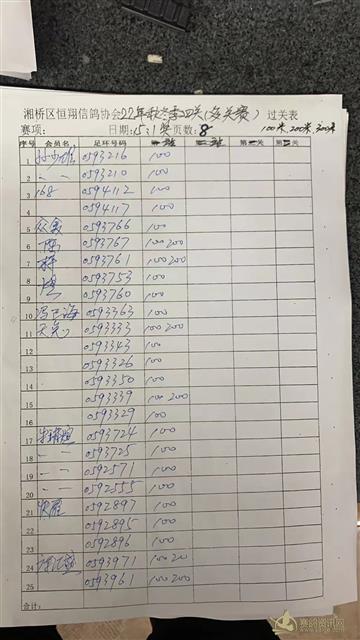 湘桥区恒翔信鸽协会22年秋冬季四关(多关赛)过关表
赛项: 日期: 15:1 页数: 8 100米,200米,300米
序号 会员名 足环号码 第一站 第二站 第三关 第四关
1 0593216 100
2 〃 0593210 100
3 168 0594112 100
4 0594117 100
5 众友 0593766 100
6 0593767 100 200
7 0593761 100 200
8 0593753 100
9 0593760 100
10 冯已海 0593363 100
11 天美 0593333 100 200
12 0593343 100
13 0593326 100
14 0593350 100
15 0593339 100 200
16 0593329 100
17 0593724 100
18 〃 0593725 100
19 〃 0592571 100
20 〃 0592555 100
21 0592897 100
22 0592895 100
23 0592896 100
24 0593971 100 200
25 0593961 100 200
合计:
赛鸽资讯网